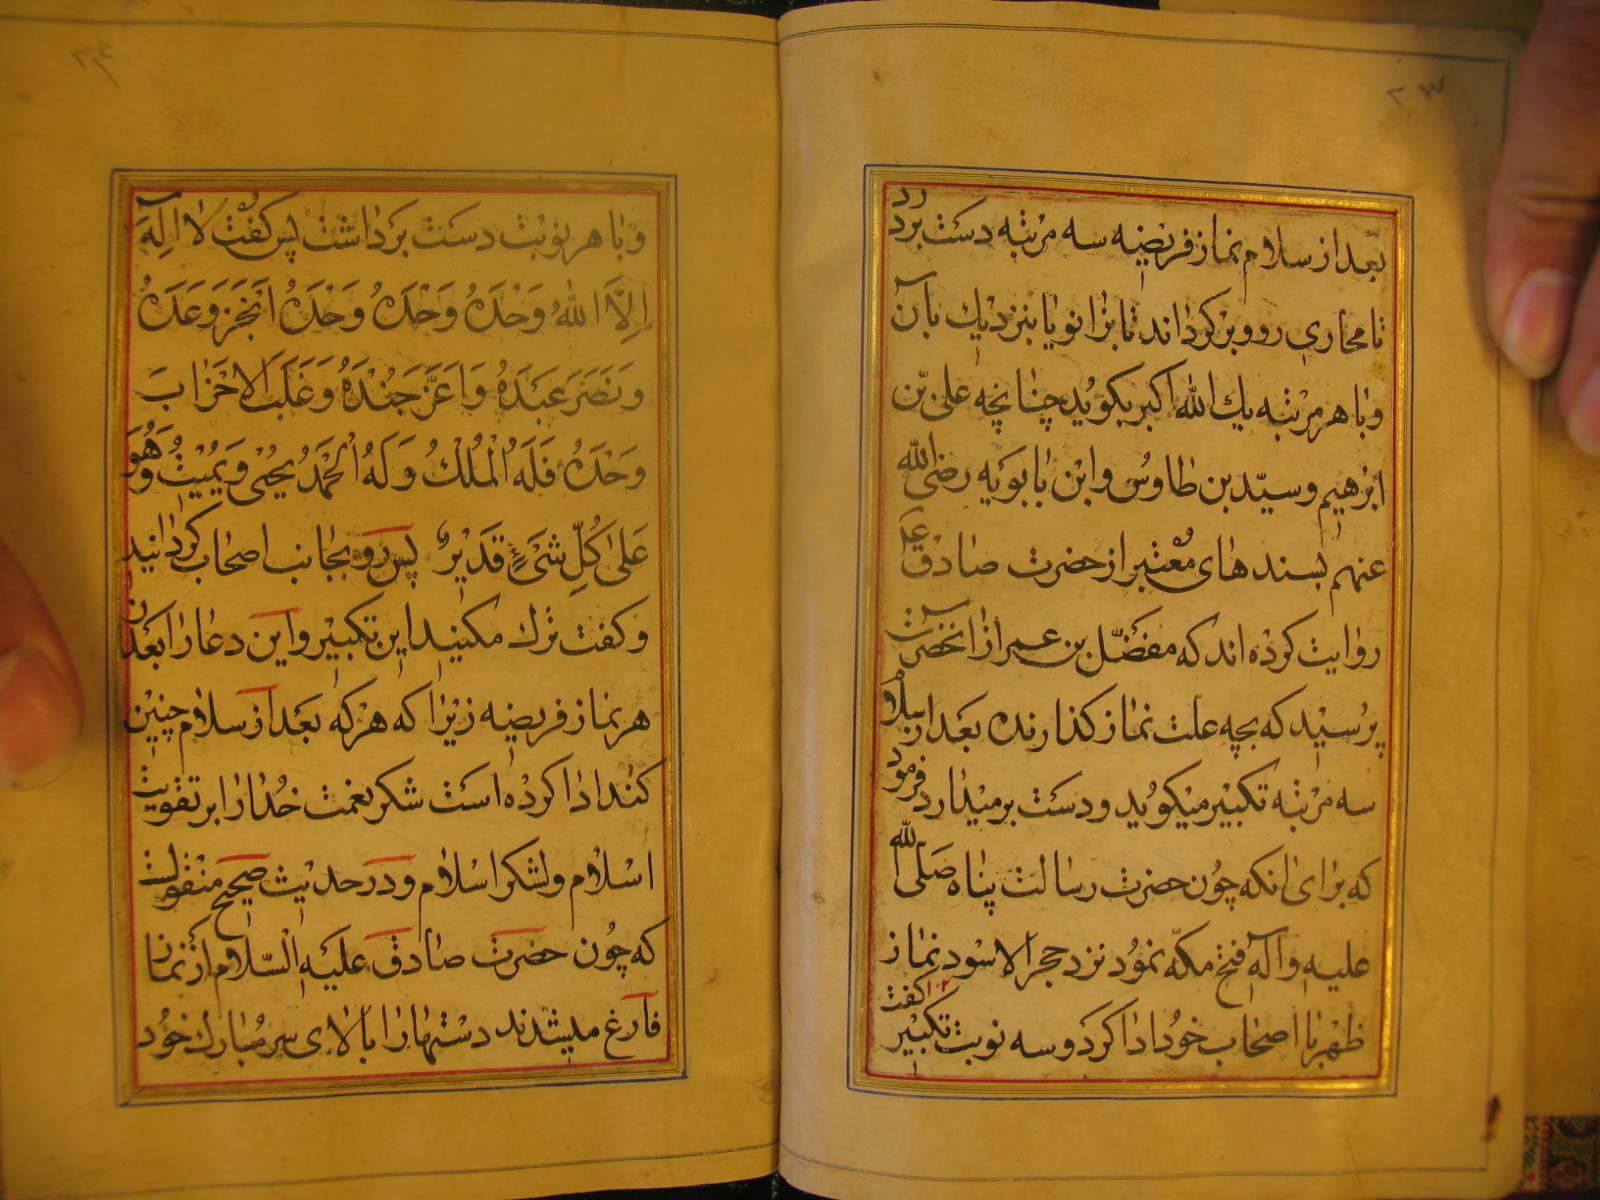 ۲۳
بعد از سلام نماز فریضه سه مرتبه دست بردارد
تا محاذی رو و برگرداند تا بزانو یا بنزدیك بآن
و با هر مرتبه یك الله اکبر بکوید چنانچه علی بن
ابرهیم و سید بن طاوس و ابن بابویه رضی الله
عنهم بسند های معتبر از حضرت صادق ع
روایت کرده اند که مفضل بن عمر از آنحضرت
پرسید که بچه علت نماز کذارنده بعد از سلام
سه مرتبه تکبیر میکوید و دست برمیدارد فرمود
که برای انکه چون حضرت رسالت پناه صَلّی الله
علیه و آله فتح مکّه نمود نزد حجر الاسود نماز
ظهر با اصحاب خود ادا کرد و سه نوبت تکبیر کفت
۲۴
و با هر نوبت دست برداشت پس کفت لا اِلهَ
اِلاَّ اللهُ وَحْدَهُ وَحْدَهُ وَحْدَهُ اَنْجَزَ وَعَدَهُ
وَنَصَرَ عَبَدَهُ وَاَعَزَّ جُنْدَهُ وَغَلَبَ الاَحْزٰابَ
وَحْدَهُ فَلَهُ الْمُلْكُ وَلَهُ الْحَمْدُ یُحْیی وَیُمیْتُ وَهُوَ
عَلٰی کُلِّ شَیْءٍ قَدیْرٌ پس رو بجانب اصحاب کردانید
و کفت ترك مکنید این تکبیر و این دعا را بعد از
هر نماز فریضه زیرا که هر که بعد از سلام چنین
کند ادا کرده است شکر نعمت خدا را بر تقویت
اسلام و لشکر اسلام و در حدیث صحیح منقولست
که چون حضرت صادق علیه السّلام از نماز
فارغ میشدند دستها را بالای سر مبارك خود